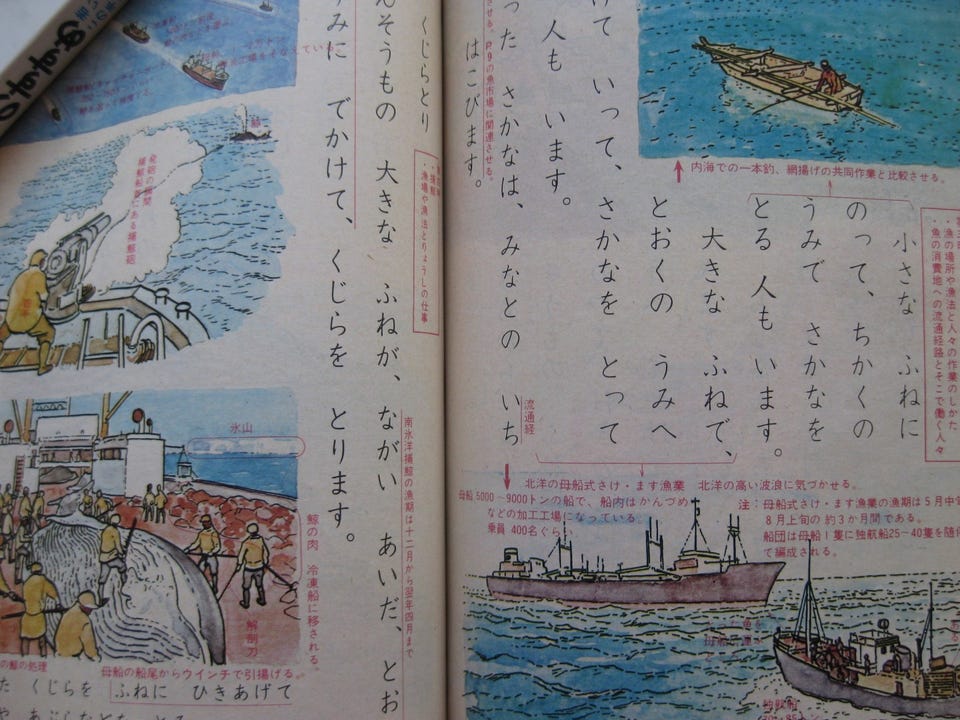 内海での一本釣、網揚げの共同作業と比較させる。
・漁の場所や漁法と人々の作業のしかた
・魚の消費地への流通経路とそこで働く人々
小さな ふねに
のって、ちかくの
うみで さかなを
とる 人も います。
大きな ふねで、
とおくの うみへ
けて いって、さかなを とって
人も います。
った さかなは、みなとの いち
はこびます。
させる。P.9の魚市場に関連させる。
流通経
北洋の母船式さけ・ます漁業 北洋の高い波浪に気づかせる。
母船 5000〜9000トンの船で、船内はかんづめ
などの加工工場になっている。
乗員 400名ぐら
注:母船式さけ・ます漁業の漁期は5月中
8月上旬の約3か月間である。
船団は母船1隻に独航船25〜40隻を随
で編成される。
独航船
くじらとり
・漁場や漁法とりょうしの仕事
んそうもの 大きな ふねが、ながい あいだ、とお
みに でかけて、くじらを とります。
南氷洋捕鯨の漁期は十二月から翌年四月まで
鯨
発砲の瞬間
捕鯨船首にある捕鯨砲
氷山
鯨の肉 冷凍船に移される。
解剖刀
の鯨の処理
母船の船尾からウインチで引揚げる。
た くじらを ふねに ひきあげて